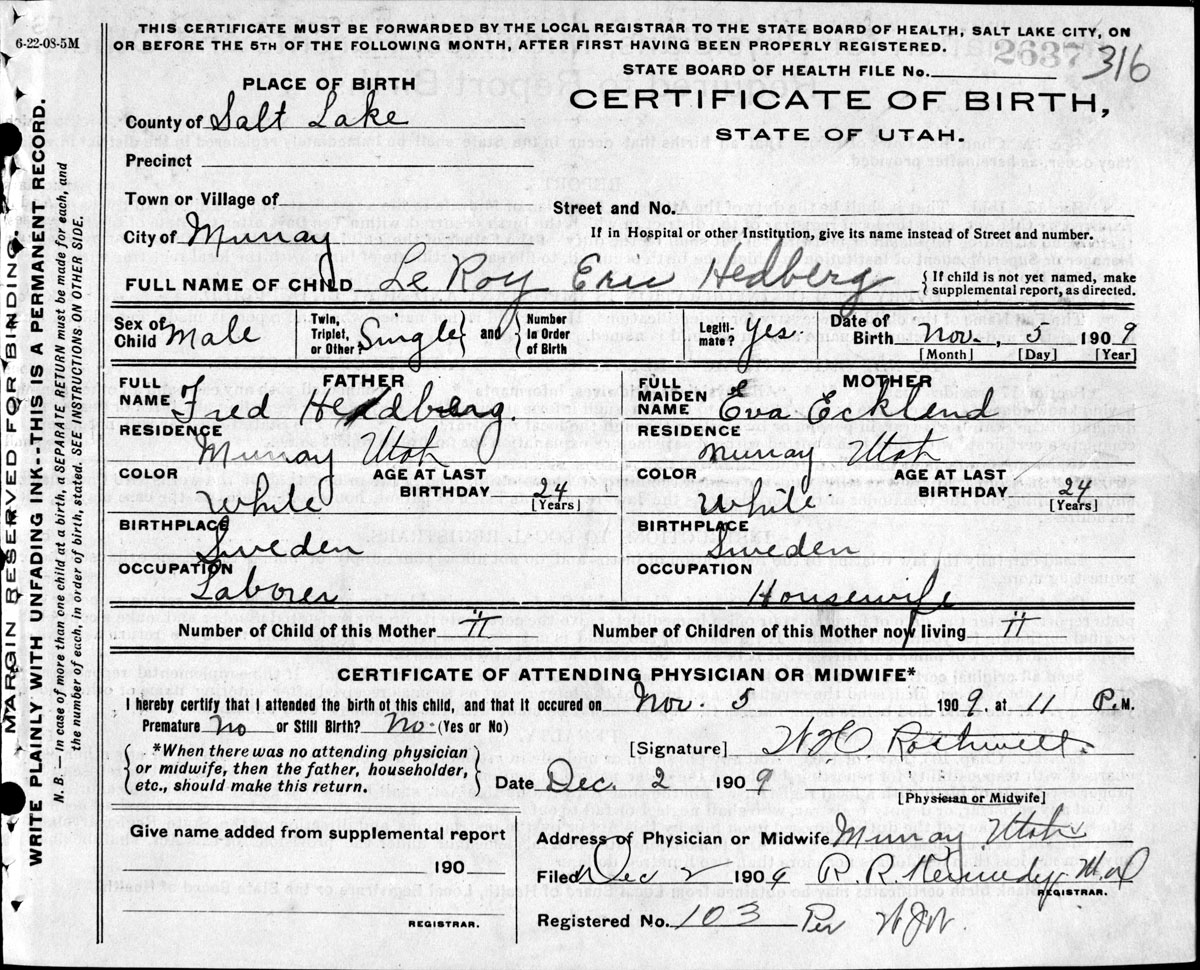 THIS CERTIFICATE MUST BE FORWARDED BY THE LOCAL REGISTRAR TO THE STATE BOARD OF HEALTH, SALT LAKE CITY, ON
OR BEFORE THE 5TH OF THE FOLLOWING MONTH, AFTER FIRST HAVING BEEN PROPERLY REGISTERED.
6-22-08-5M
2637 316
STATE BOARD OF HEALTH FILE No.
PLACE OF BIRTH
CERTIFICATE OF BIRTH,
STATE OF UTAH.
County of Salt Lake
Precinct
Town or Village of
Street and No.
City of Murray
If in Hospital or other Institution, give its name instead of Street and number.
FULL NAME OF CHILD Le Roy Eric Hedberg { If child is not yet named, make supplemental report, as directed.
Sex of Child Male Twin, Triplet, or Other? Single } and { Number in Order of Birth Legiti- mate? Yes. Date of Birth Nov. , 5 1909
[Month] [Day] [Year]
FATHER MOTHER
FULL NAME Fred Hedberg FULL MAIDEN NAME Eva Ecklend
RESIDENCE Murray Utah RESIDENCE Murray Utah
COLOR White AGE AT LAST BIRTHDAY 24 [Years] COLOR White AGE AT LAST BIRTHDAY 24 [Years]
BIRTHPLACE Sweden BIRTHPLACE Sweden
OCCUPATION Laborer OCCUPATION Housewife
Number of Child of this Mother II Number of Children of this Mother now living II
CERTIFICATE OF ATTENDING PHYSICIAN OR MIDWIFE*
I hereby certify that I attended the birth of this child, and that it occured on Nov. 5 1909. at 11 P. M.
Premature No or Still Birth? No. (Yes or No)
*When there was no attending physician or midwife, then the father, householder, etc., should make this return.
[Signature] Rothwell
Date Dec. 2 1909
[Physician or Midwife]
Give name added from supplemental report
190
REGISTRAR.
Address of Physician or Midwife Murray Utah
Filed Dec 2 1909 R. R. Kennedy M.D
REGISTRAR.
Registered No. 103 Per
MARGIN RESERVED FOR BINDING
WRITE PLAINLY WITH UNFADING INK--THIS IS A PERMANENT RECORD.
N. B. — In case of more than one child at a birth, a SEPARATE RETURN must be made for each, and
the number of each, in order of birth, stated. SEE INSTRUCTIONS ON OTHER SIDE.